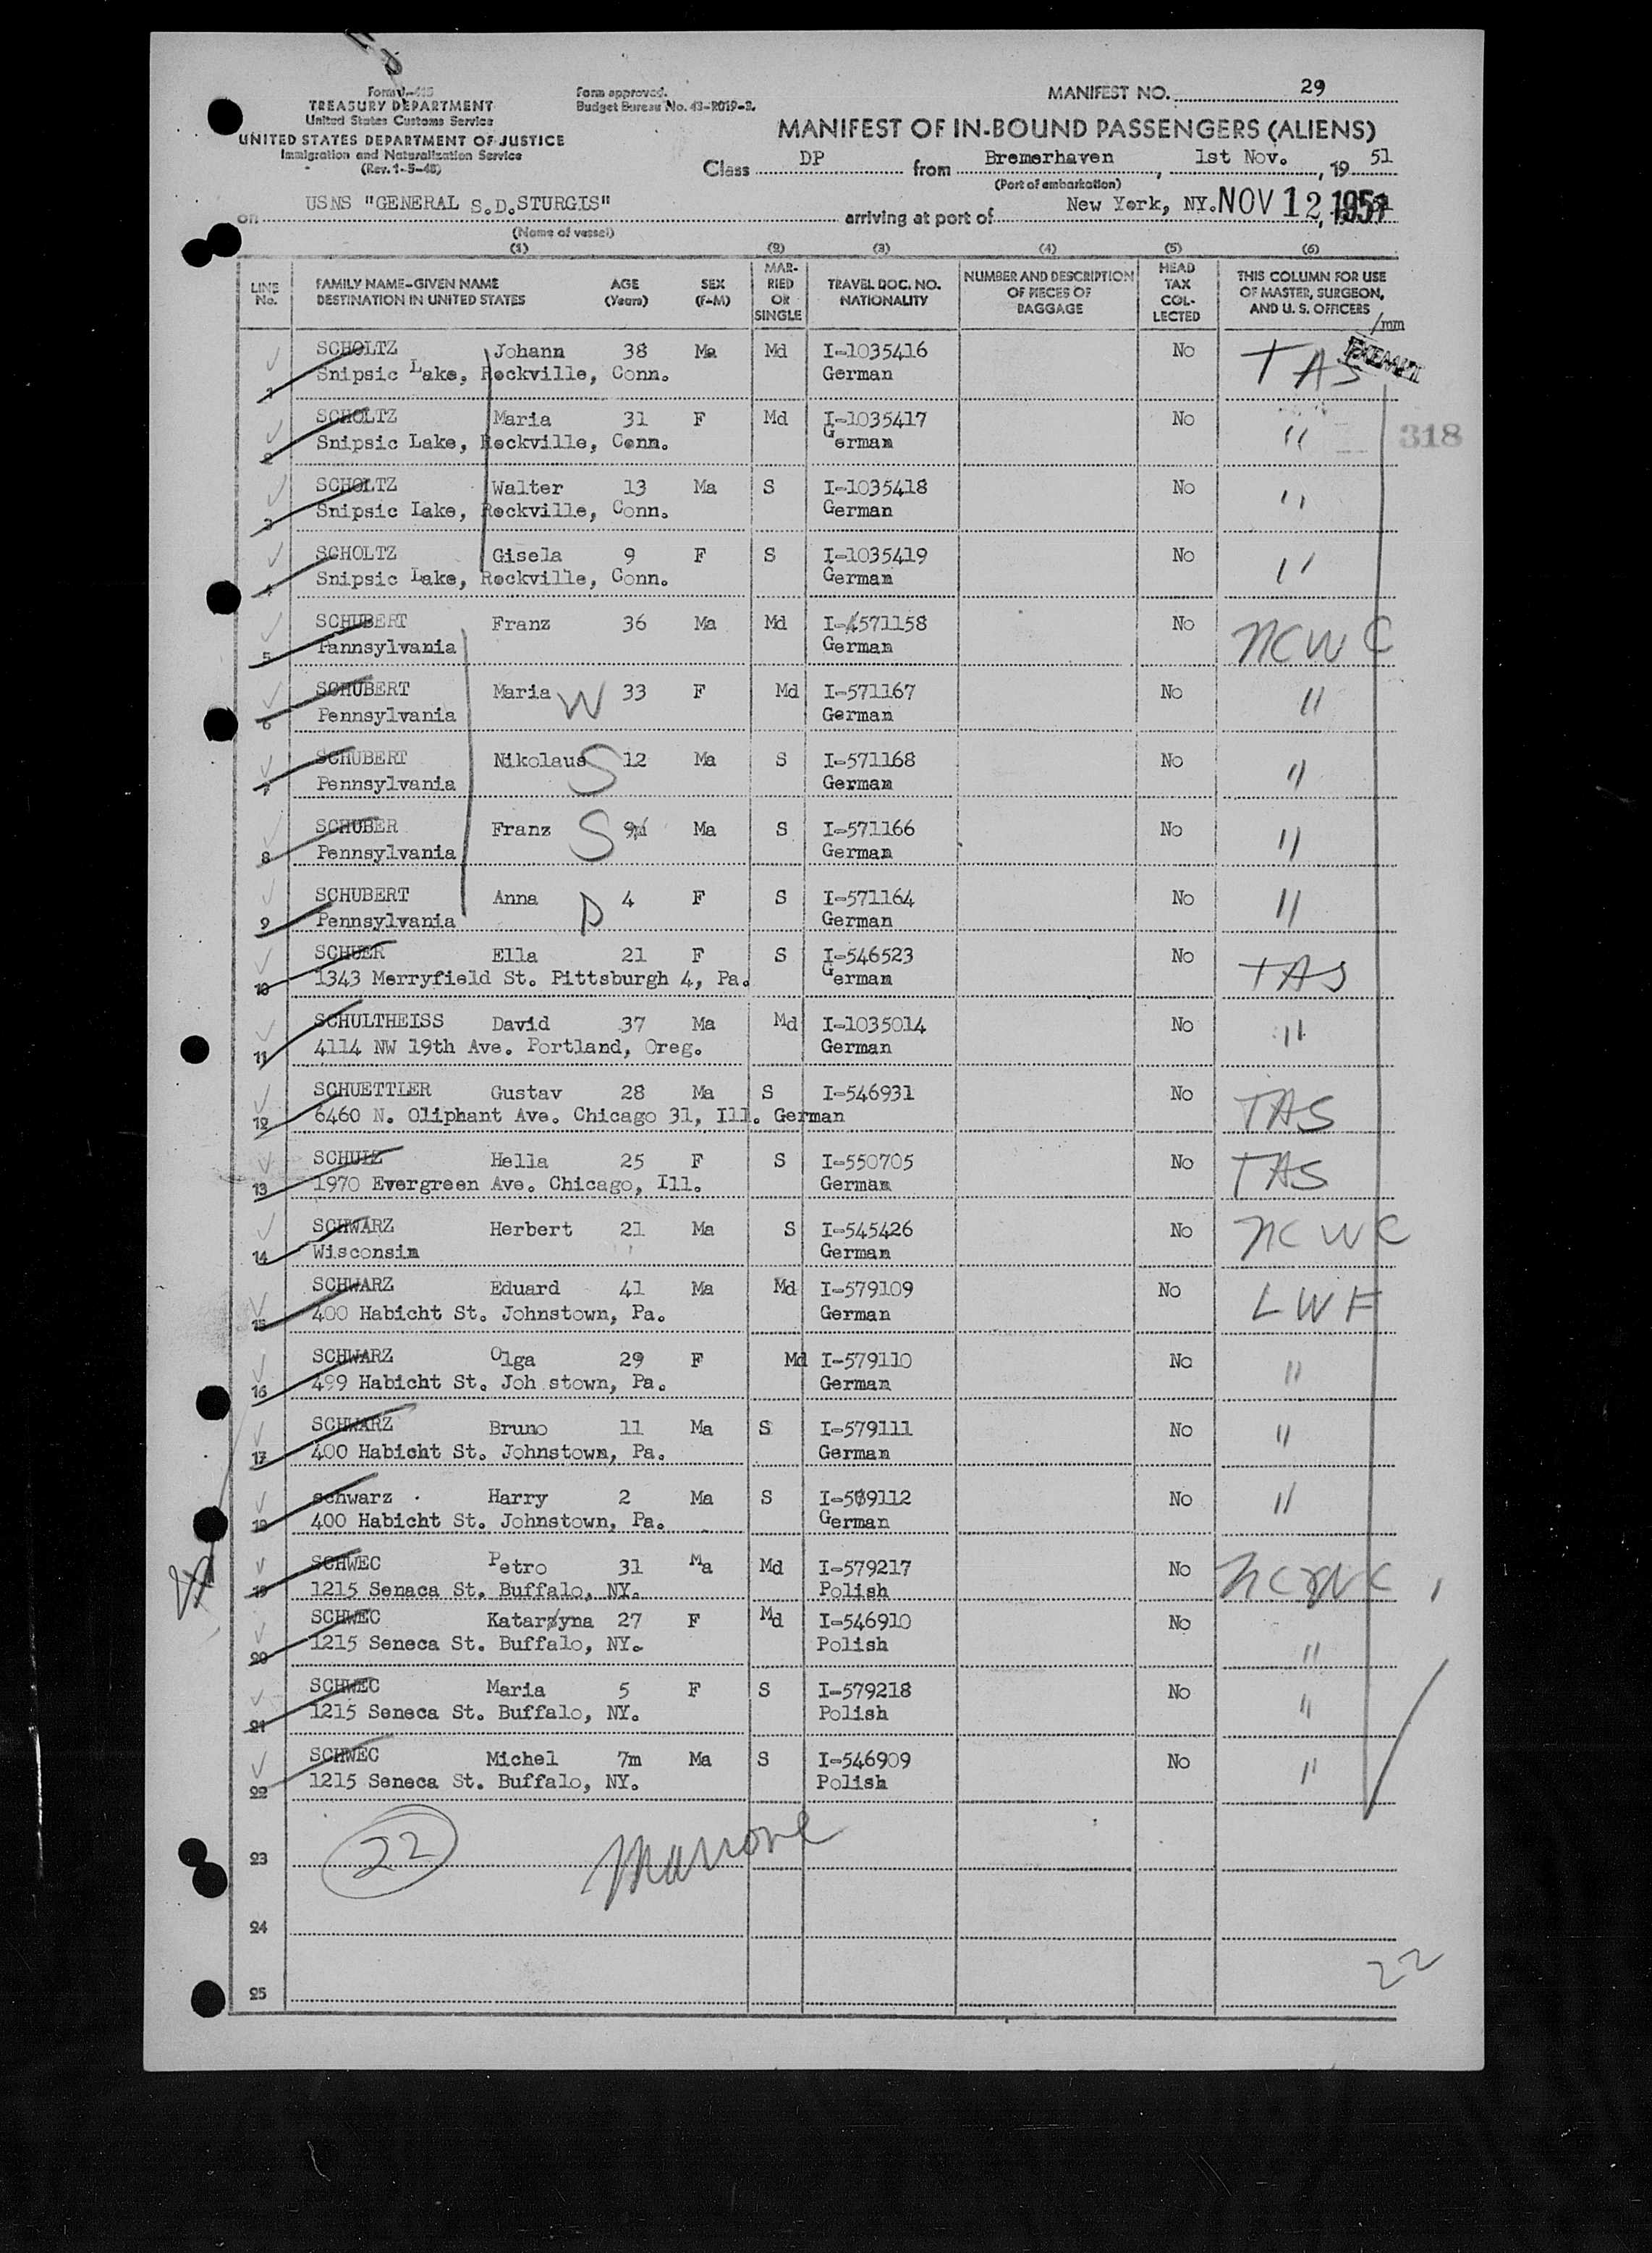 Form I-415
TREASURY DEPARTMENT
United States Customs Service
UNITED STATES DEPARTMENT OF JUSTICE
Immigration and Naturalization Service
(Rev. 1-5-48)
Form approved.
Budget Bureau No. 43-R019-2.
MANIFEST NO. 29
MANIFEST OF IN-BOUND PASSENGERS (ALIENS)
Class DP from Bremerhaven, 1st Nov., 19 51
(Port of embarkation)
on USNS "GENERAL S.D.STURGIS" arriving at port of New York, NY. NOV 12, 1951
(Name of vessel)
(1) (2) (3) (4) (5) (6)
LINE No. FAMILY NAME-GIVEN NAME DESTINATION IN UNITED STATES AGE (Years) SEX (F-M) MARRIED OR SINGLE TRAVEL DOC. NO. NATIONALITY NUMBER AND DESCRIPTION OF PIECES OF BAGGAGE HEAD TAX COLLECTED THIS COLUMN FOR USE OF MASTER, SURGEON, AND U. S. OFFICERS
/mm
EXEMPT
1 SCHOLTZ Johann 38 Ma Md I-1035416 No TAS
Snipsic Lake, Rockville, Conn. German
2 SCHOLTZ Maria 31 F Md I-1035417 No "
318
Snipsic Lake, Rockville, Conn. German
3 SCHOLTZ Walter 13 Ma S I-1035418 No "
Snipsic Lake, Rockville, Conn. German
4 SCHOLTZ Gisela 9 F S I-1035419 No "
Snipsic Lake, Rockville, Conn. German
5 SCHUBERT Franz 36 Ma Md I-571158 No NCWC
Pannsylvania German
6 SCHUBERT Maria W 33 F Md I-571167 No "
Pennsylvania German
7 SCHUBERT Nikolaus S 12 Ma S I-571168 No "
Pennsylvania German
8 SCHUBER Franz S 9 Ma S I-571166 No "
Pennsylvania German
9 SCHUBERT Anna D 4 F S I-571164 No "
Pennsylvania German
10 SCHUER Ella 21 F S I-546523 No TAS
1343 Merryfield St. Pittsburgh 4, Pa. German
11 SCHULTHEISS David 37 Ma Md I-1035014 No "
4114 NW 19th Ave. Portland, Oreg. German
12 SCHUETTLER Gustav 28 Ma S I-546931 No TAS
6460 N. Oliphant Ave. Chicago 31, Ill. German
13 SCHULZ Hella 25 F S I-550705 No TAS
1970 Evergreen Ave. Chicago, Ill. German
14 SCHWARZ Herbert 21 Ma S I-545426 No NCWC
Wisconsin German
15 SCHWARZ Eduard 41 Ma Md I-579109 No LWF
400 Habicht St. Johnstown, Pa. German
16 SCHWARZ Olga 29 F Md I-579110 No "
499 Habicht St. Joh stown, Pa. German
17 SCHWARZ Bruno 11 Ma S I-579111 No "
400 Habicht St. Johnstown, Pa. German
18 schwarz Harry 2 Ma S I-579112 No "
400 Habicht St. Johnstown, Pa. German
19 SCHWEC Petro 31 Ma Md I-579217 No NCWC
1215 Senaca St. Buffalo, NY. Polish
20 SCHWEC Katarzyna 27 F Md I-546910 No "
1215 Seneca St. Buffalo, NY. Polish
21 SCHWEC Maria 5 F S I-579218 No "
1215 Seneca St. Buffalo, NY. Polish
22 SCHWEC Michel 7m Ma S I-546909 No "
1215 Seneca St. Buffalo, NY. Polish
23 22
24
22
25